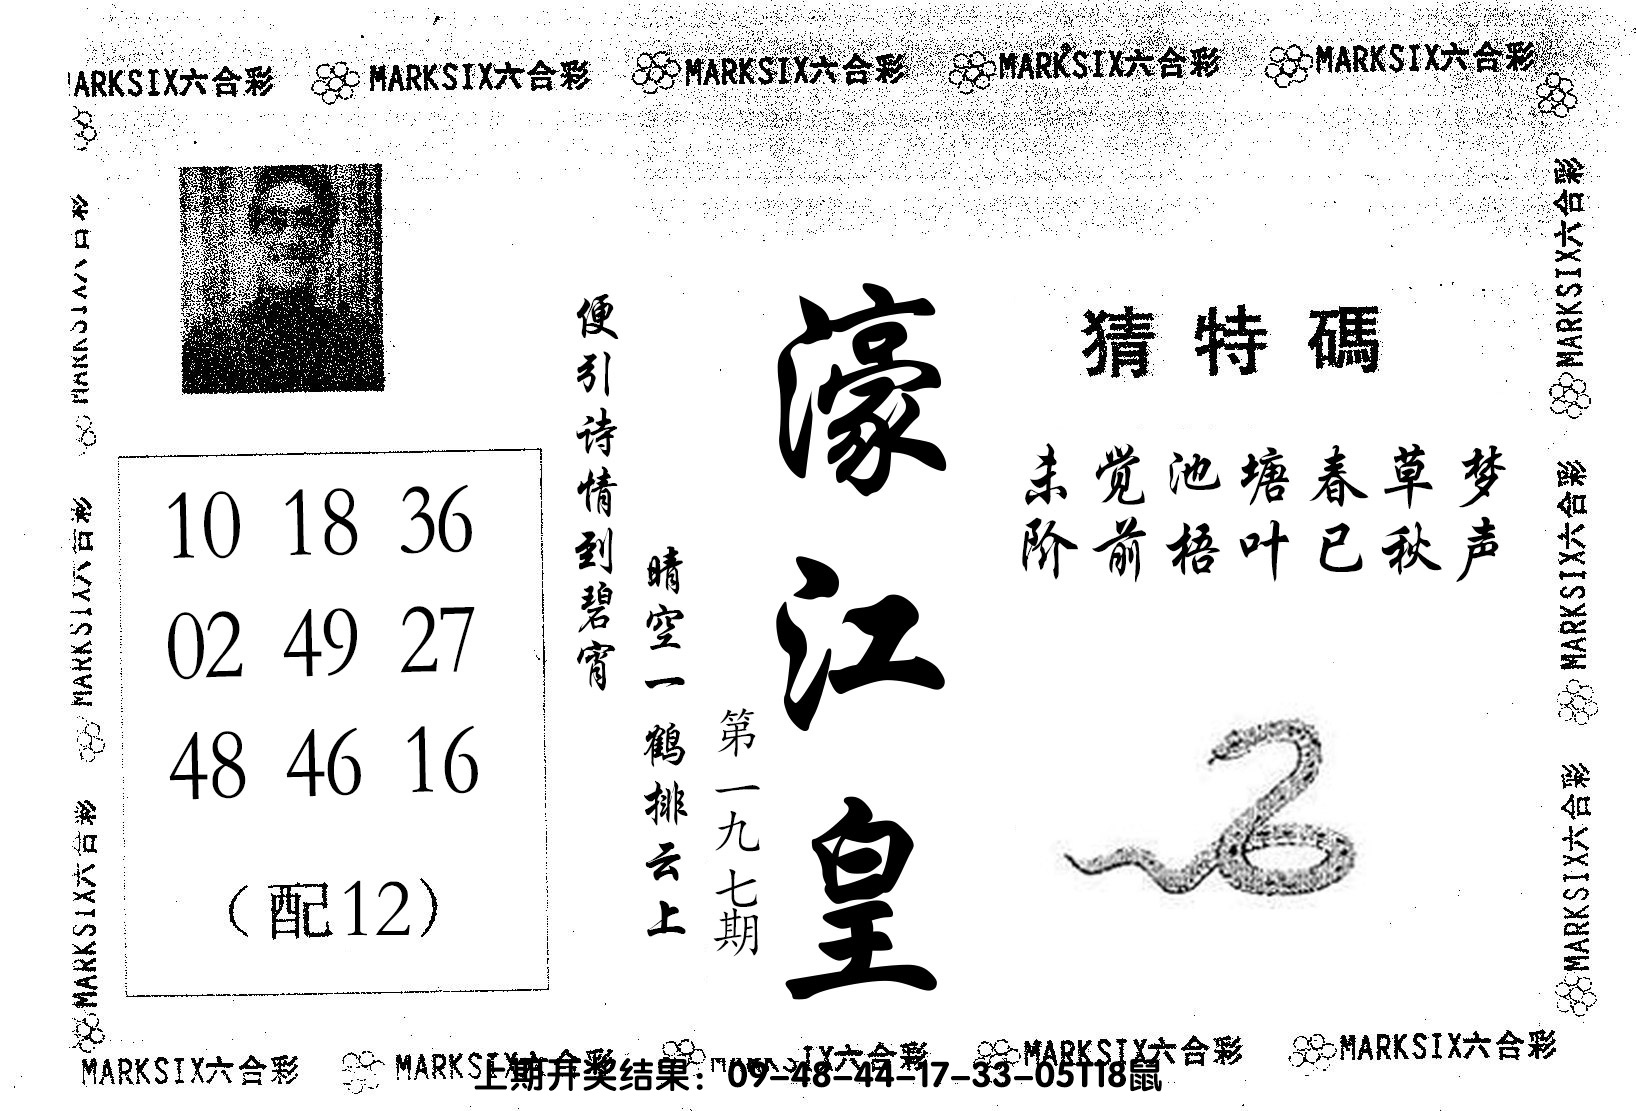 MARKSIX六合彩 MARKSIX六合彩 MARKSIX六合彩 MARKSIX六合彩 MARKSIX六合彩
猜特碼
未觉池塘春草梦
阶前梧叶已秋声
濠江皇
第一九七期
晴空一鹤排云上
便引诗情到碧宵
10 18 36
02 49 27
48 46 16
（配12）
MARKSIX六合彩
MARKSIX六合彩
MARKSIX六合彩
MARKSIX六合彩
MARKSIX六合彩
MARKSIX六合彩
MARKSIX六合彩 MARKSIX六合彩 MARKSIX六合彩 MARKSIX六合彩 MARKSIX六合彩
上期开奖结果：09-48-44-17-33-05T18鼠